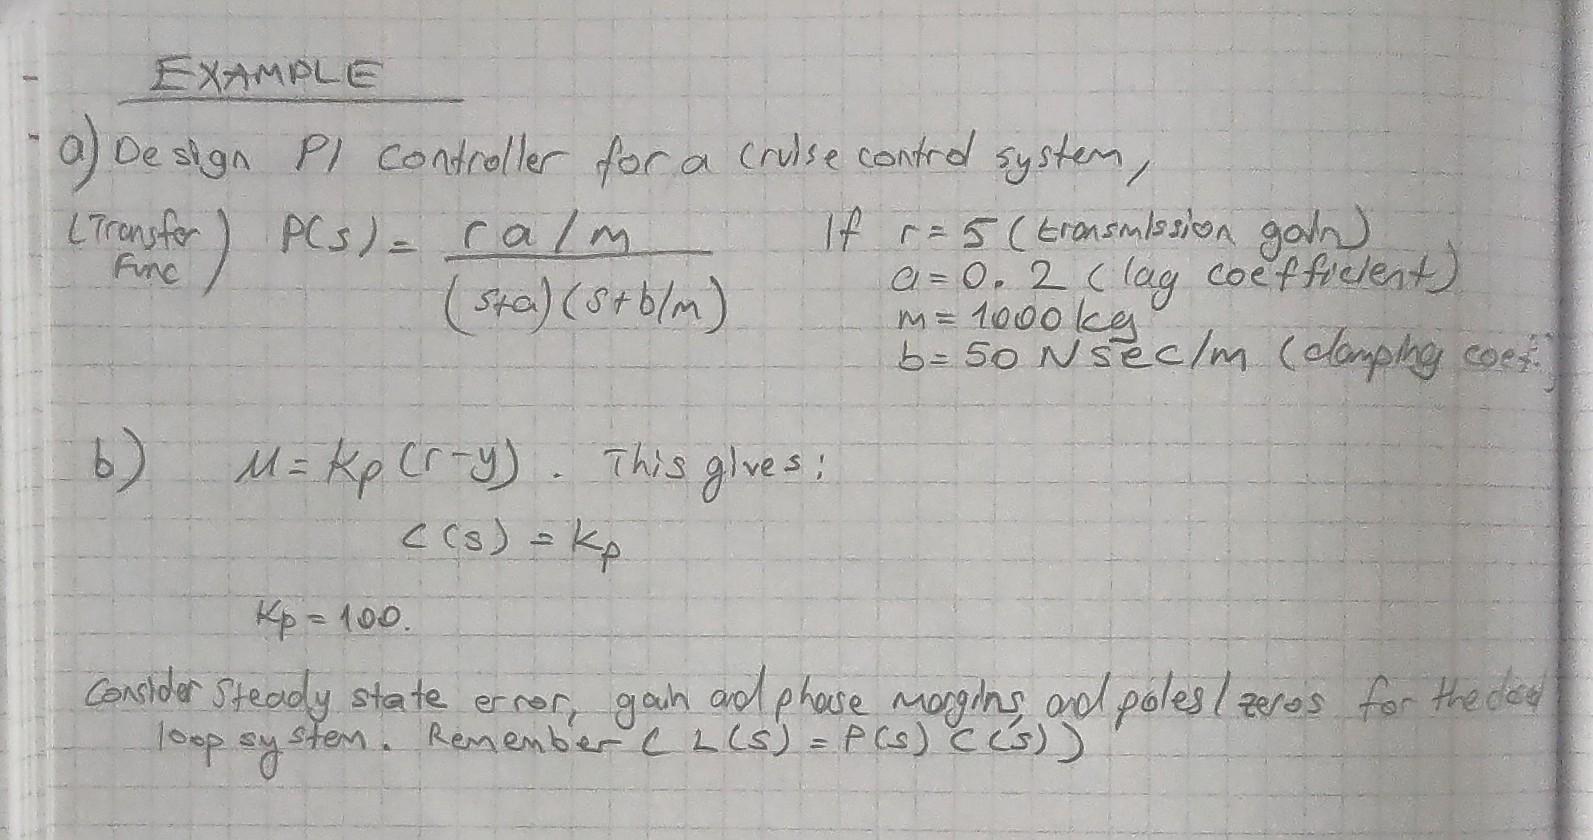 EXAMPLE
a) Design PI controller for a cruise control system,
(Transfer Func) P(s) = r a / m / (s+a)(s+b/m)
If r = 5 (transmission gain)
a = 0.2 (lag coefficient)
m = 1000 kg
b = 50 N sec/m (damping coef.)
b) u = Kp (r-y). This gives:
C(s) = Kp
Kp = 100.
Consider steady state error, gain and phase margins, and poles/zeros for the
loop system. Remember ( L(s) = P(s) C(s) )